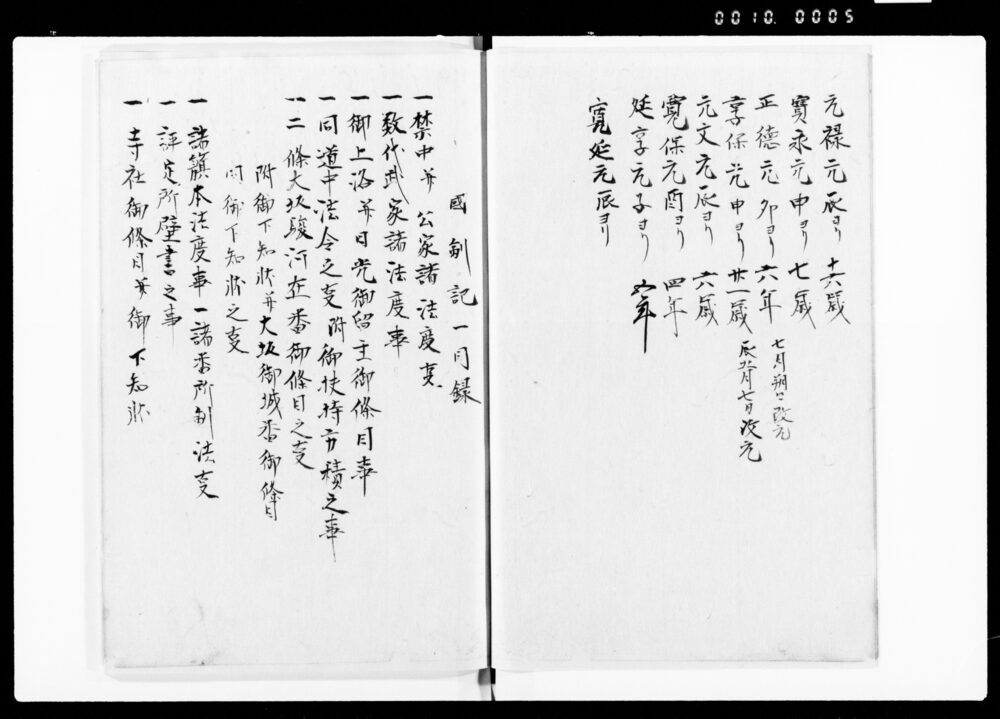 0010. 0005
元禄元辰ヨリ 十六歳
寳永元申ヨリ 七歳
正徳元卯ヨリ 六年 七月朔日改元
享保元申ヨリ 廿一歳 辰 月七日改元
元文元辰ヨリ 六歳
寛保元酉ヨリ 四年
延享元子ヨリ 年
寛延元辰ヨリ
國制記一目録
一禁中并 公家諸法度事
一数代武家諸法度事
一御上洛并日光御留主御條目事
一同道中法令之事 附御扶持方積之事
一二條大坂駿河在番御條目之事
附御下知状并大坂御城番御條目
同御下知状之事
一諸籏本法度事一諸番所制法事
一評定所壁書之事
一寺社御條目并御下知状